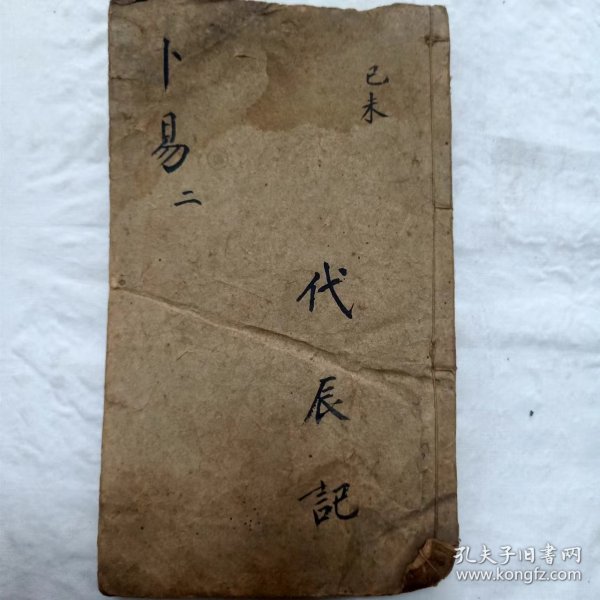 己未
代辰記
卜易二
孔夫子旧書网
www.kongfz.com